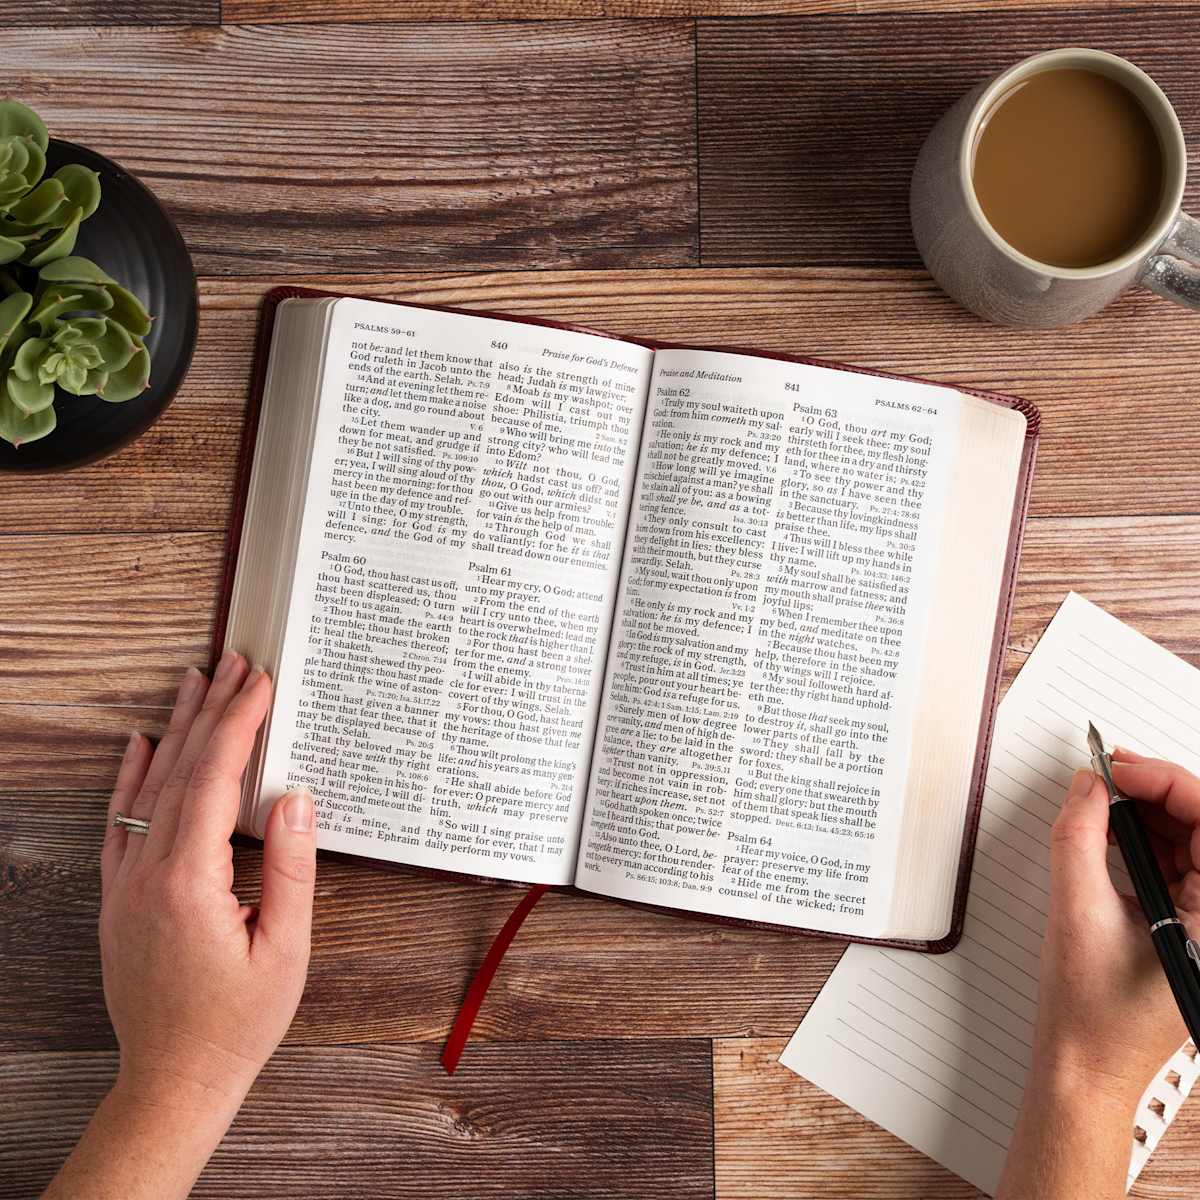 PSALMS 59–61
840
Praise for God's Defence
not be: and let them know that
God ruleth in Jacob unto the
ends of the earth. Selah. Ps. 7:9
14 And at evening let them re-
turn; and let them make a noise
like a dog, and go round about
the city. v. 6
15 Let them wander up and
down for meat, and grudge if
they be not satisfied. Ps. 109:10
16 But I will sing of thy pow-
er; yea, I will sing aloud of thy
mercy in the morning: for thou
hast been my defence and ref-
uge in the day of my trouble.
17 Unto thee, O my strength,
will I sing: for God is my
defence, and the God of my
mercy.
Psalm 60
1 O God, thou hast cast us off,
thou hast scattered us, thou
hast been displeased; O turn
thyself to us again. Ps. 44:9
2 Thou hast made the earth
to tremble; thou hast broken
it: heal the breaches thereof;
for it shaketh. 2 Chron. 7:14
3 Thou hast shewed thy peo-
ple hard things: thou hast made
us to drink the wine of aston-
ishment. Ps. 71:20; Isa. 51:17,22
4 Thou hast given a banner
to them that fear thee, that it
may be displayed because of
the truth. Selah. Ps. 20:5
5 That thy beloved may be
delivered; save with thy right
hand, and hear me. Ps. 108:6
6 God hath spoken in his ho-
liness; I will rejoice, I will di-
Shechem, and mete out the
of Succoth.
ead is mine, and
seh is mine; Ephraim
also is the strength of mine
head; Judah is my lawgiver;
8 Moab is my washpot; over
Edom will I cast out my
shoe: Philistia, triumph thou
because of me. 2 Sam. 8:2
9 Who will bring me into the
strong city? who will lead me
into Edom?
10 Wilt not thou, O God,
which hadst cast us off? and
thou, O God, which didst not
go out with our armies? v. 1
11 Give us help from trouble:
for vain is the help of man.
12 Through God we shall
do valiantly: for he it is that
shall tread down our enemies.
Psalm 61
1 Hear my cry, O God; attend
unto my prayer.
2 From the end of the earth
will I cry unto thee, when my
heart is overwhelmed: lead me
to the rock that is higher than I.
3 For thou hast been a shel-
ter for me, and a strong tower
from the enemy. Prov. 18:10
4 I will abide in thy taberna-
cle for ever: I will trust in the
covert of thy wings. Selah.
5 For thou, O God, hast heard
my vows: thou hast given me
the heritage of those that fear
thy name.
6 Thou wilt prolong the king's
life: and his years as many gen-
erations. Ps. 21:4
7 He shall abide before God
for ever: O prepare mercy and
truth, which may preserve
him.
8 So will I sing praise unto
thy name for ever, that I may
daily perform my vows.
Praise and Meditation
841
PSALMS 62–64
Psalm 62
1 Truly my soul waiteth upon
God: from him cometh my sal-
vation. Ps. 33:20
2 He only is my rock and my
salvation; he is my defence; I
shall not be greatly moved. v. 6
3 How long will ye imagine
mischief against a man? ye shall
be slain all of you: as a bowing
wall shall ye be, and as a tot-
tering fence. Isa. 30:13
4 They only consult to cast
him down from his excellency:
they delight in lies: they bless
with their mouth, but they curse
inwardly. Selah. Ps. 28:3
5 My soul, wait thou only upon
God; for my expectation is from
him. Vv. 1-2
6 He only is my rock and my
salvation: he is my defence; I
shall not be moved.
7 In God is my salvation and my
glory: the rock of my strength,
and my refuge, is in God. Jer. 3:23
8 Trust in him at all times; ye
people, pour out your heart be-
fore him: God is a refuge for us.
Selah. Ps. 42:4; 1 Sam. 1:15; Lam. 2:19
9 Surely men of low degree
are vanity, and men of high de-
gree are a lie: to be laid in the
balance, they are altogether
lighter than vanity. Ps. 39:5,11
10 Trust not in oppression,
and become not vain in rob-
bery: if riches increase, set not
your heart upon them. Ps. 52:7
11 God hath spoken once; twice
have I heard this; that power be-
longeth unto God.
12 Also unto thee, O Lord, be-
longeth mercy: for thou render-
est to every man according to his
work. Ps. 86:15; 103:8; Dan. 9:9
Psalm 63
1 O God, thou art my God;
early will I seek thee: my soul
thirsteth for thee, my flesh long-
eth for thee in a dry and thirsty
land, where no water is; Ps. 42:2
2 To see thy power and thy
glory, so as I have seen thee
in the sanctuary. Ps. 27:4; 78:61
3 Because thy lovingkindness
is better than life, my lips shall
praise thee. Ps. 30:5
4 Thus will I bless thee while
I live: I will lift up my hands in
thy name. Ps. 104:33; 146:2
5 My soul shall be satisfied as
with marrow and fatness; and
my mouth shall praise thee with
joyful lips: Ps. 36:8
6 When I remember thee upon
my bed, and meditate on thee
in the night watches. Ps. 42:8
7 Because thou hast been my
help, therefore in the shadow
of thy wings will I rejoice.
8 My soul followeth hard af-
ter thee: thy right hand uphold-
eth me.
9 But those that seek my soul,
to destroy it, shall go into the
lower parts of the earth.
10 They shall fall by the
sword: they shall be a portion
for foxes.
11 But the king shall rejoice in
God; every one that sweareth by
him shall glory: but the mouth
of them that speak lies shall be
stopped. Deut. 6:13; Isa. 45:23; 65:16
Psalm 64
1 Hear my voice, O God, in my
prayer: preserve my life from
fear of the enemy.
2 Hide me from the secret
counsel of the wicked; from